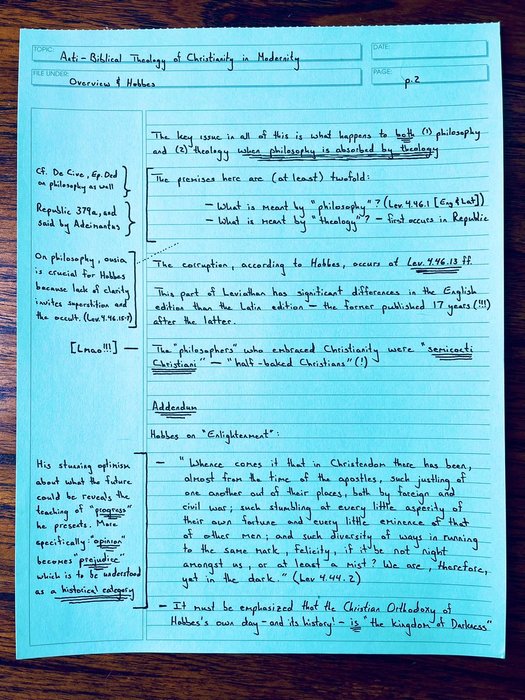 TOPIC: Anti-Biblical Theology of Christianity in Modernity
DATE:
FILE UNDER: Overview & Hobbes
PAGE: p.2
The key issue in all of this is what happens to both (1) philosophy
and (2) theology when philosophy is absorbed by theology
Cf. De Cive, Ep. Ded
on philosophy as well
The premises here are (at least) twofold:
Republic 379a, and
said by Adeimantus
- What is meant by "philosophy"? (Lev. 4.46.1 [Eng & Lat])
- What is meant by "theology"? - first occurs in Republic
On philosophy, ousia
is crucial for Hobbes
because lack of clarity
invites superstition and
the occult. (Lev. 4.46.15-7)
The corruption, according to Hobbes, occurs at Lev. 4.46.13 ff.
This part of Leviathan has significant differences in the English
edition than the Latin edition - the former published 17 years (!!!)
after the latter.
[Lmao!!!] -
The "philosophers" who embraced Christianity were "semicocti
Christiani" - "half-baked Christians" (!)
Addendum
Hobbes on "Enlightenment":
His stunning optimism
about what the future
could be reveals the
teaching of "progress"
he presents. More
specifically: "opinion"
becomes "prejudice"
which is to be understood
as a historical category
- "Whence comes it that in Christendom there has been,
almost from the time of the apostles, such justling of
one another out of their places, both by foreign and
civil war; such stumbling at every little asperity of
their own fortune and every little eminence of that
of other men; and such diversity of ways in running
to the same mark, felicity, if it be not night
amongst us, or at least a mist? We are, therefore,
yet in the dark." (Lev 4.44.2)
- It must be emphasized that the Christian Orthodoxy of
Hobbes's own day - and its history! - is "the kingdom of Darkness"